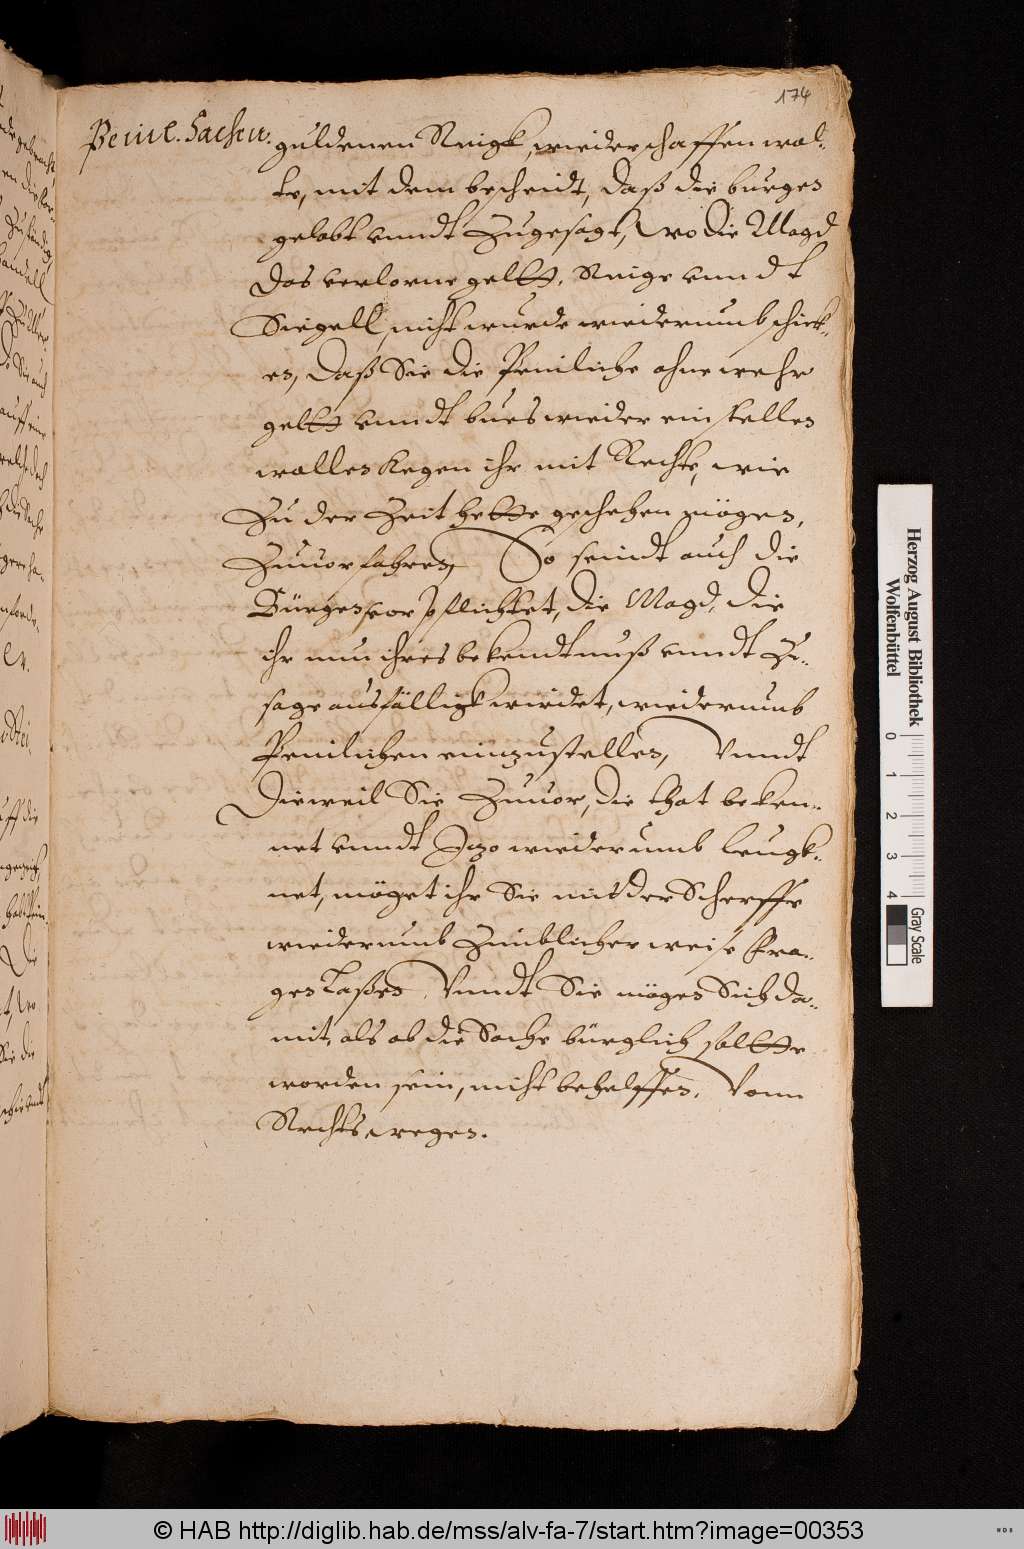 174
Peinl. Sachen.
guldenen Ringk, wieder schaffen wol-
te, mit dem bescheidt, daß die burgen
gelobt unndt Zugesagt, wo die Magd
das verlorne geldt, Ringe unndt
Siegell, nicht wurde wiederumb schick-
en, daß Sie die Peinliche ohne wehr
geldt unndt bues wieder einstellen
wollen kegen ihr mit Rechte, wie
Zu der Zeit hette geschehen mögen,
Zuuorfahren, So seindt auch die
Bürgen vorpflichtet, die Magd, die
ihr nun ihres bekendtnuß unndt Zu-
sage ausfälligk wirdet, wiederumb
Peinlichen einzustellen, Vnndt
Dieweil Sie Zuuor, die that beken-
net unndt Jzo wiederumb leugk-
net, möget ihr Sie mit der Scherffe
wiederumb Zimblicher weise fra-
gen laßen, Vnndt Sie mögen Sich da-
mit, als ob die Sache bürglich soltte
worden sein, nicht behelffen. Vonn
Rechts wegen.
Herzog August Bibliothek
Wolfenbüttel
0 1 2 3 4
Gray Scale
© HAB http://diglib.hab.de/mss/alv-fa-7/start.htm?image=00353